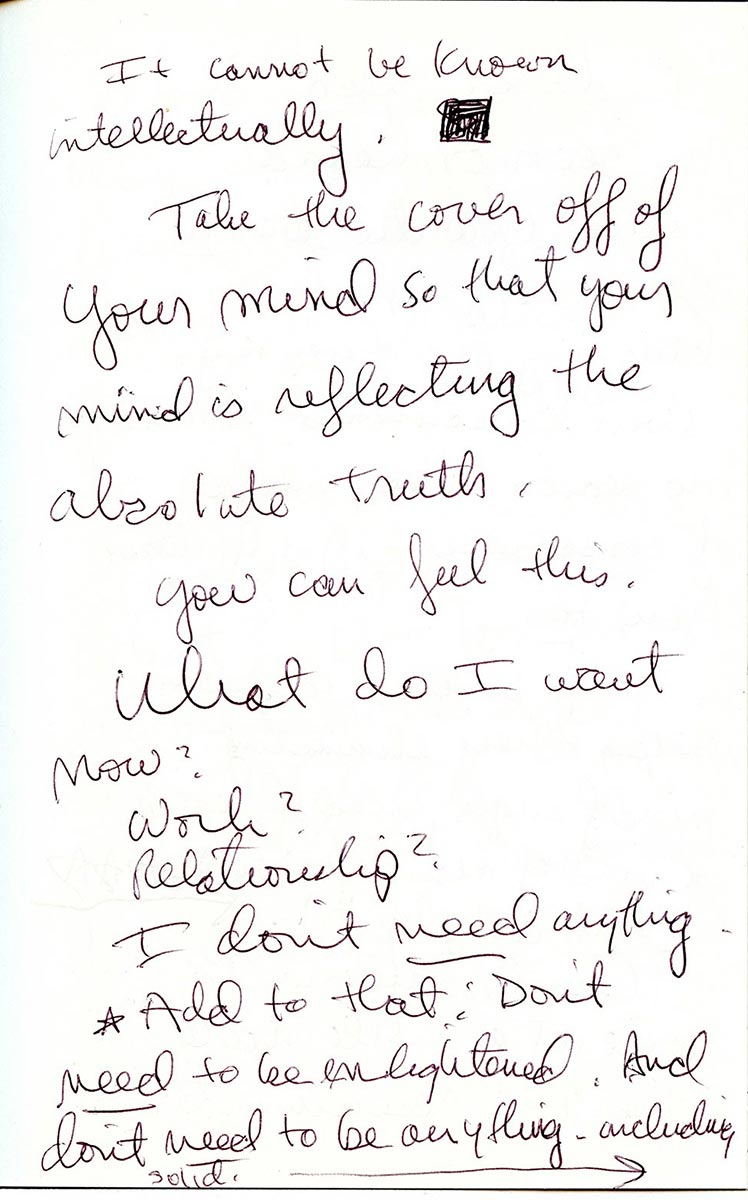 It cannot be known
intellectually.
Take the cover off of
your mind so that your
mind is reflecting the
absolute truth.
you can feel this.
What do I want
now?
Work?
Relationship?
I don't need anything.
* Add to that: Don't
need to be enlightened. And
don't need to be anything - including
solid.